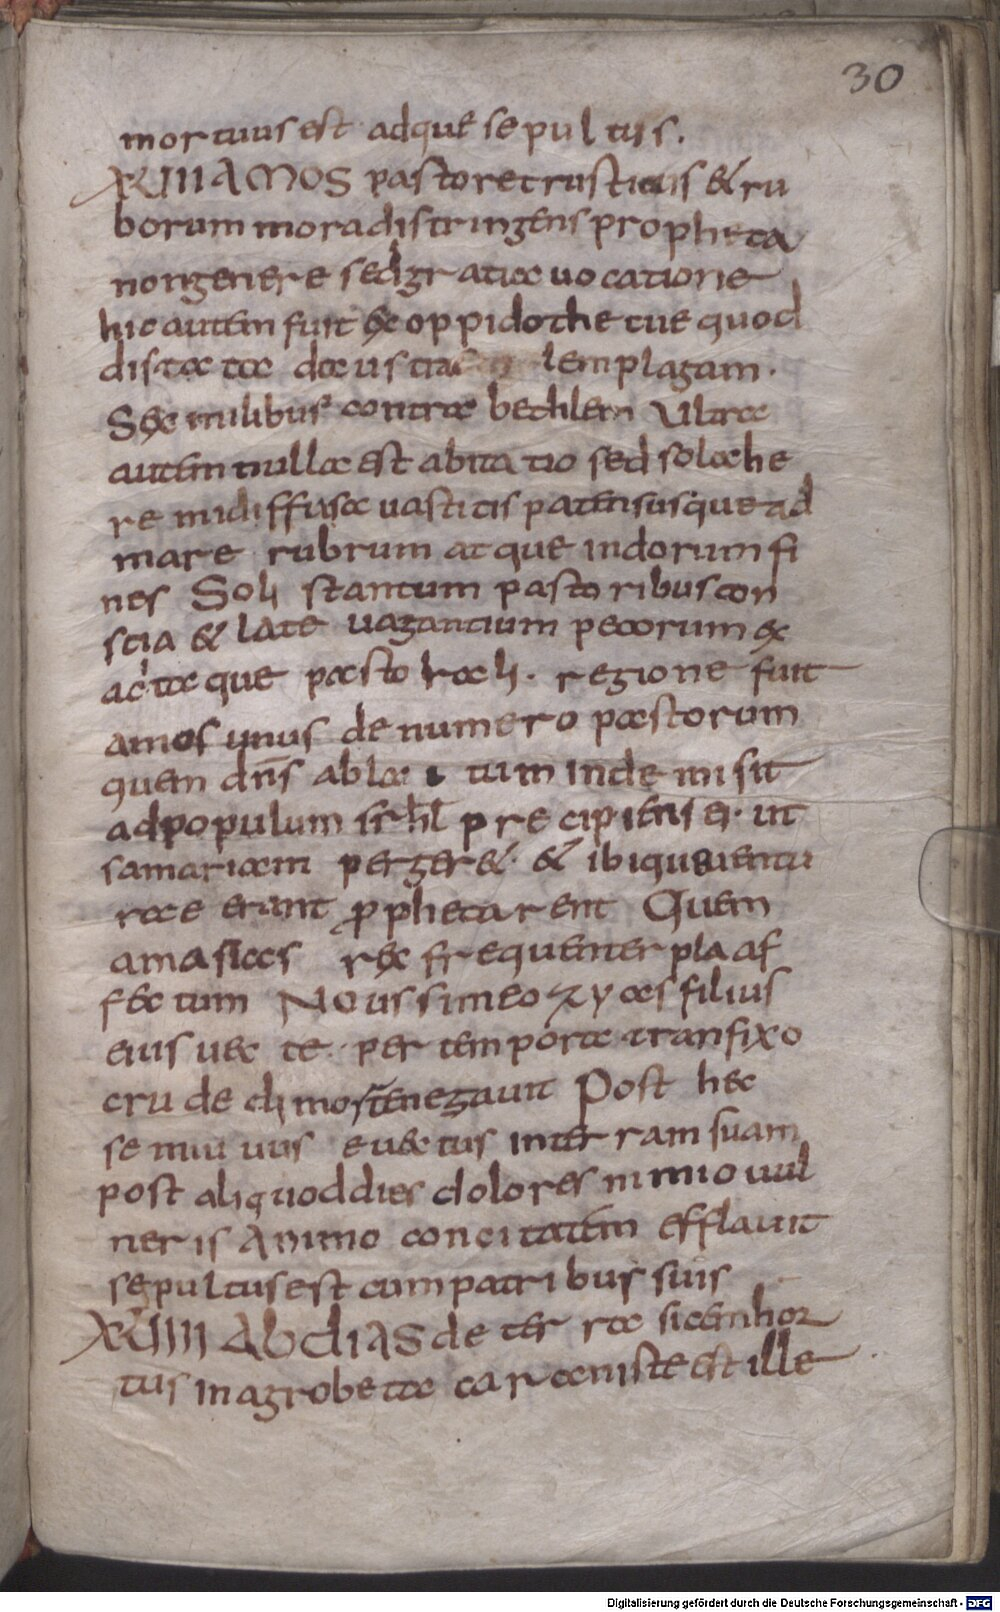 30
mortuus est adque sepultus.
XLIII AMOS pastor et rusticus & ru
borum mora distringens propheta
non genere sed gratiae uocatione
hic autem fuit ex oppido thecue quod
distat ad austra lem plagam.
Sex milibus contra bethlem Ultra
autem nulla est abitatio sed sola he
remi diffusa uastitis patens usque ad
mare rubrum atque indorum fi
nes Soli stantum pastoribus con
scia & late uagantium pecorum ex
actaque pastorali. regione fuit
amos unus de numero pastorum
quem dns abla tum inde misit
ad populum isrhl precipiens ei. ut
samariam perger&. & ibi que uentu
rae erant prophetarent Quem
amasias rex frequenter plaaf
fectum Nouissime ozyas filius
eius uecte. per tempora transfixo
crudeli morte negauit Post hec
semiuuis euectus inter ram suam
post aliquod dies dolores nimio uul
neris animo concitatem efflauit
sepultus est cum patribus suis
XLIIII Abdias de terra sicem hor
tus in agro betacaram iste est ille
Digitalisierung gefördert durch die Deutsche Forschungsgemeinschaft - DFG